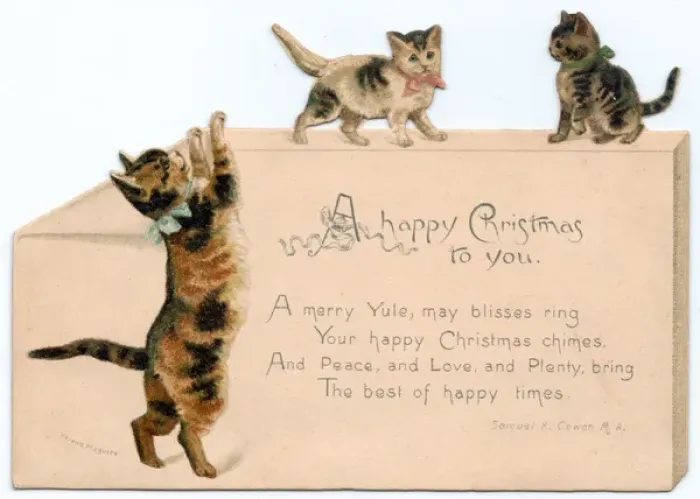 A happy Christmas
to you.
A merry Yule, may blisses ring
Your happy Christmas chimes.
And Peace, and Love, and Plenty, bring
The best of happy times.
Samuel K. Cowan M.A.